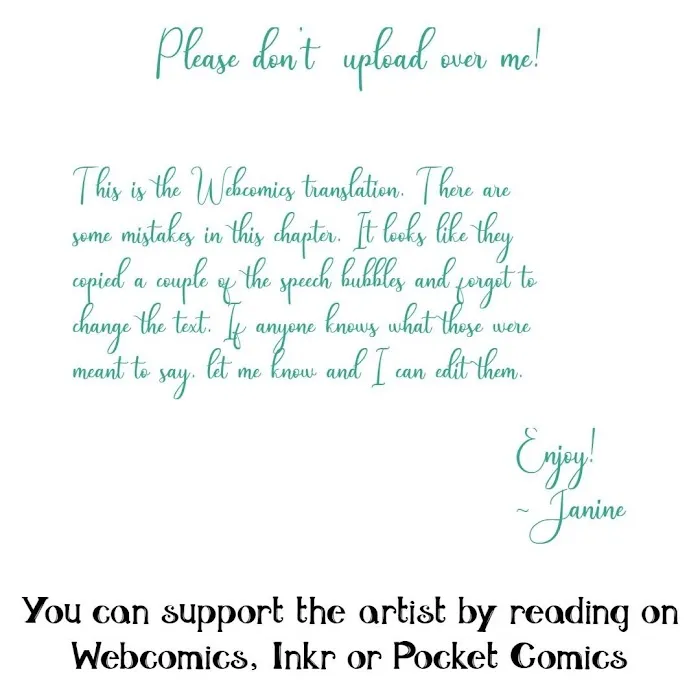 Please don't upload over me!
This is the Webcomics translation. There are
some mistakes in this chapter. It looks like they
copied a couple of the speech bubbles and forgot to
change the text. If anyone knows what those were
meant to say, let me know and I can edit them.
Enjoy!
~ Janine
You can support the artist by reading on
Webcomics, Inkr or Pocket Comics